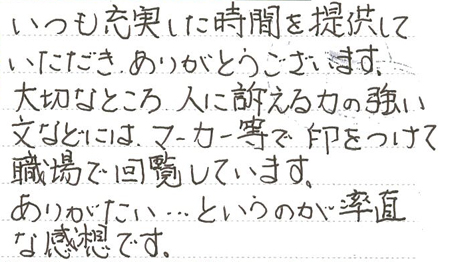 いつも充実した時間を提供して
いただき、ありがとうございます。
大切なところ、人に訴える力の強い
文などには、マーカー等で印をつけて
職場で回覧しています。
ありがたい…というのが率直
な感想です。